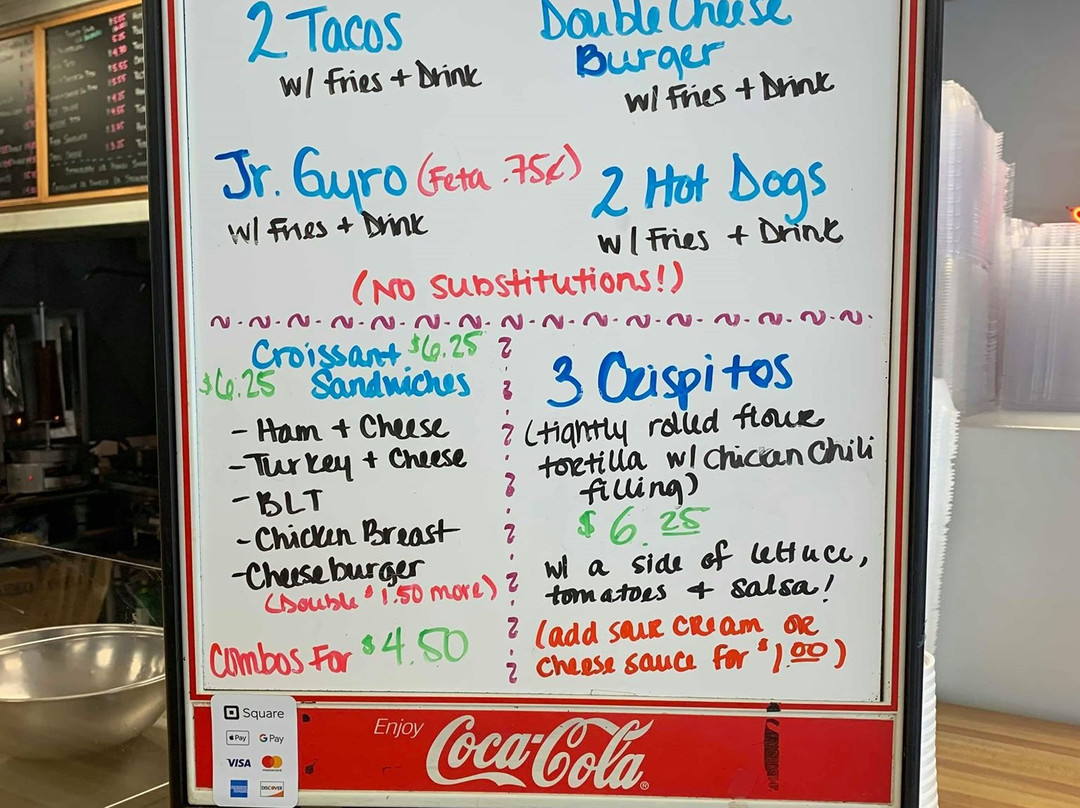 2 Tacos
w/ Fries + Drink
Double Cheese
Burger
w/ Fries + Drink
Jr. Gyro (Feta .75¢)
w/ Fries + Drink
2 Hot Dogs
w/ Fries + Drink
(No substitutions!)
Croissant $6.25
$6.25 Sandwiches
- Ham + Cheese
- Turkey + Cheese
- BLT
- Chicken Breast
- Cheeseburger
(Double $1.50 more)
Combos For $4.50
3 Crispitos
(tightly rolled flour
tortilla w/ Chickan Chili
filling)
$6.25
w/ a side of lettuce,
tomatoes + salsa!
(add sour cream or
cheese sauce for $1.00)
Square
Pay G Pay
VISA mastercard
DISCOVER
Enjoy
Coca-Cola